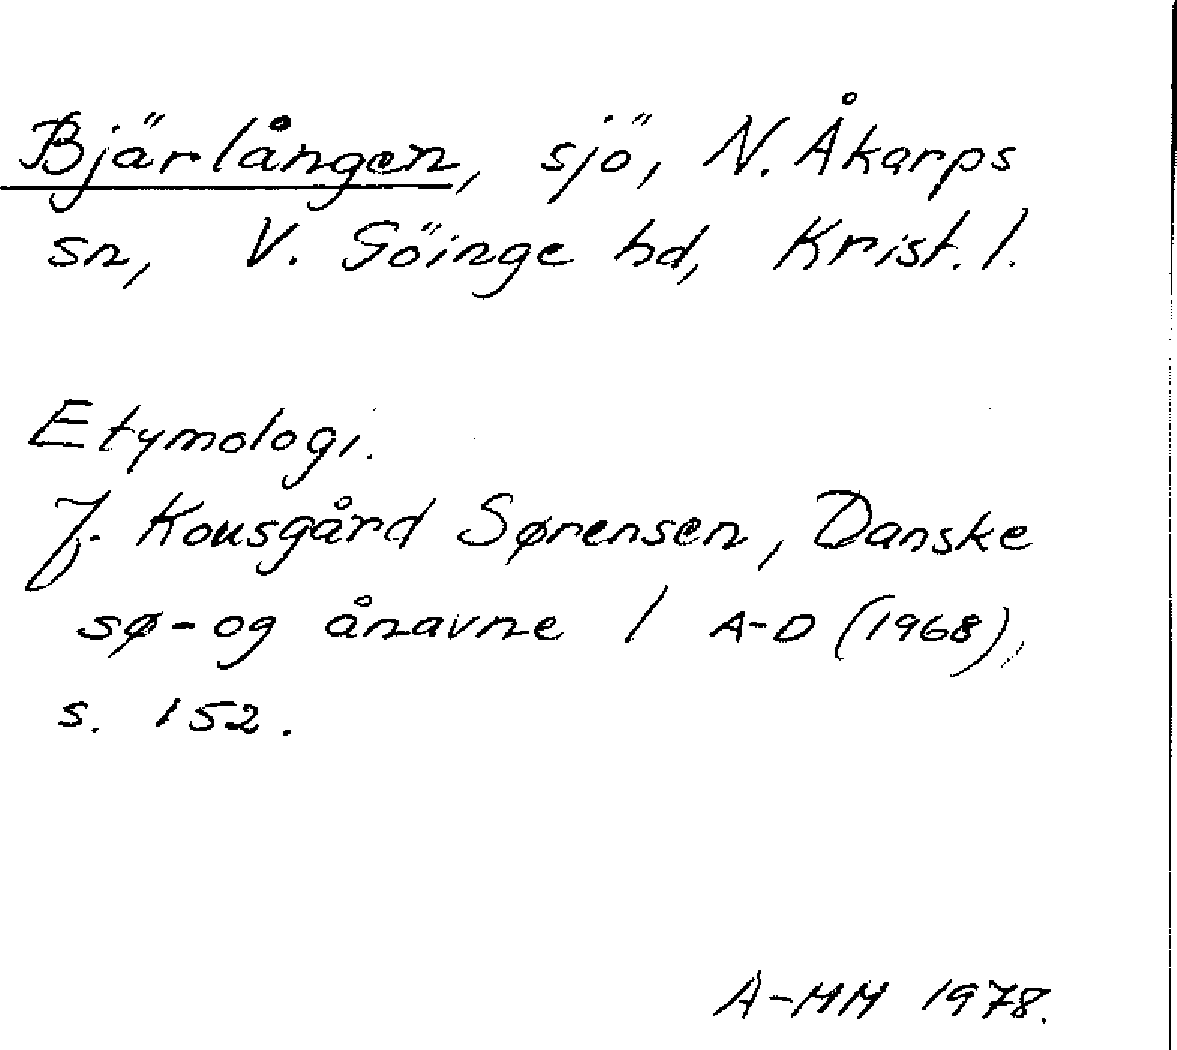 Bjärlången, sjö, N. Åkarps
sn, V. Göinge hd, Krist. l.
Etymologi.
J. Kousgård Sørensen, Danske
sø- og ånavne 1 A-D (1968),
s. 152.
A-MM 1978.